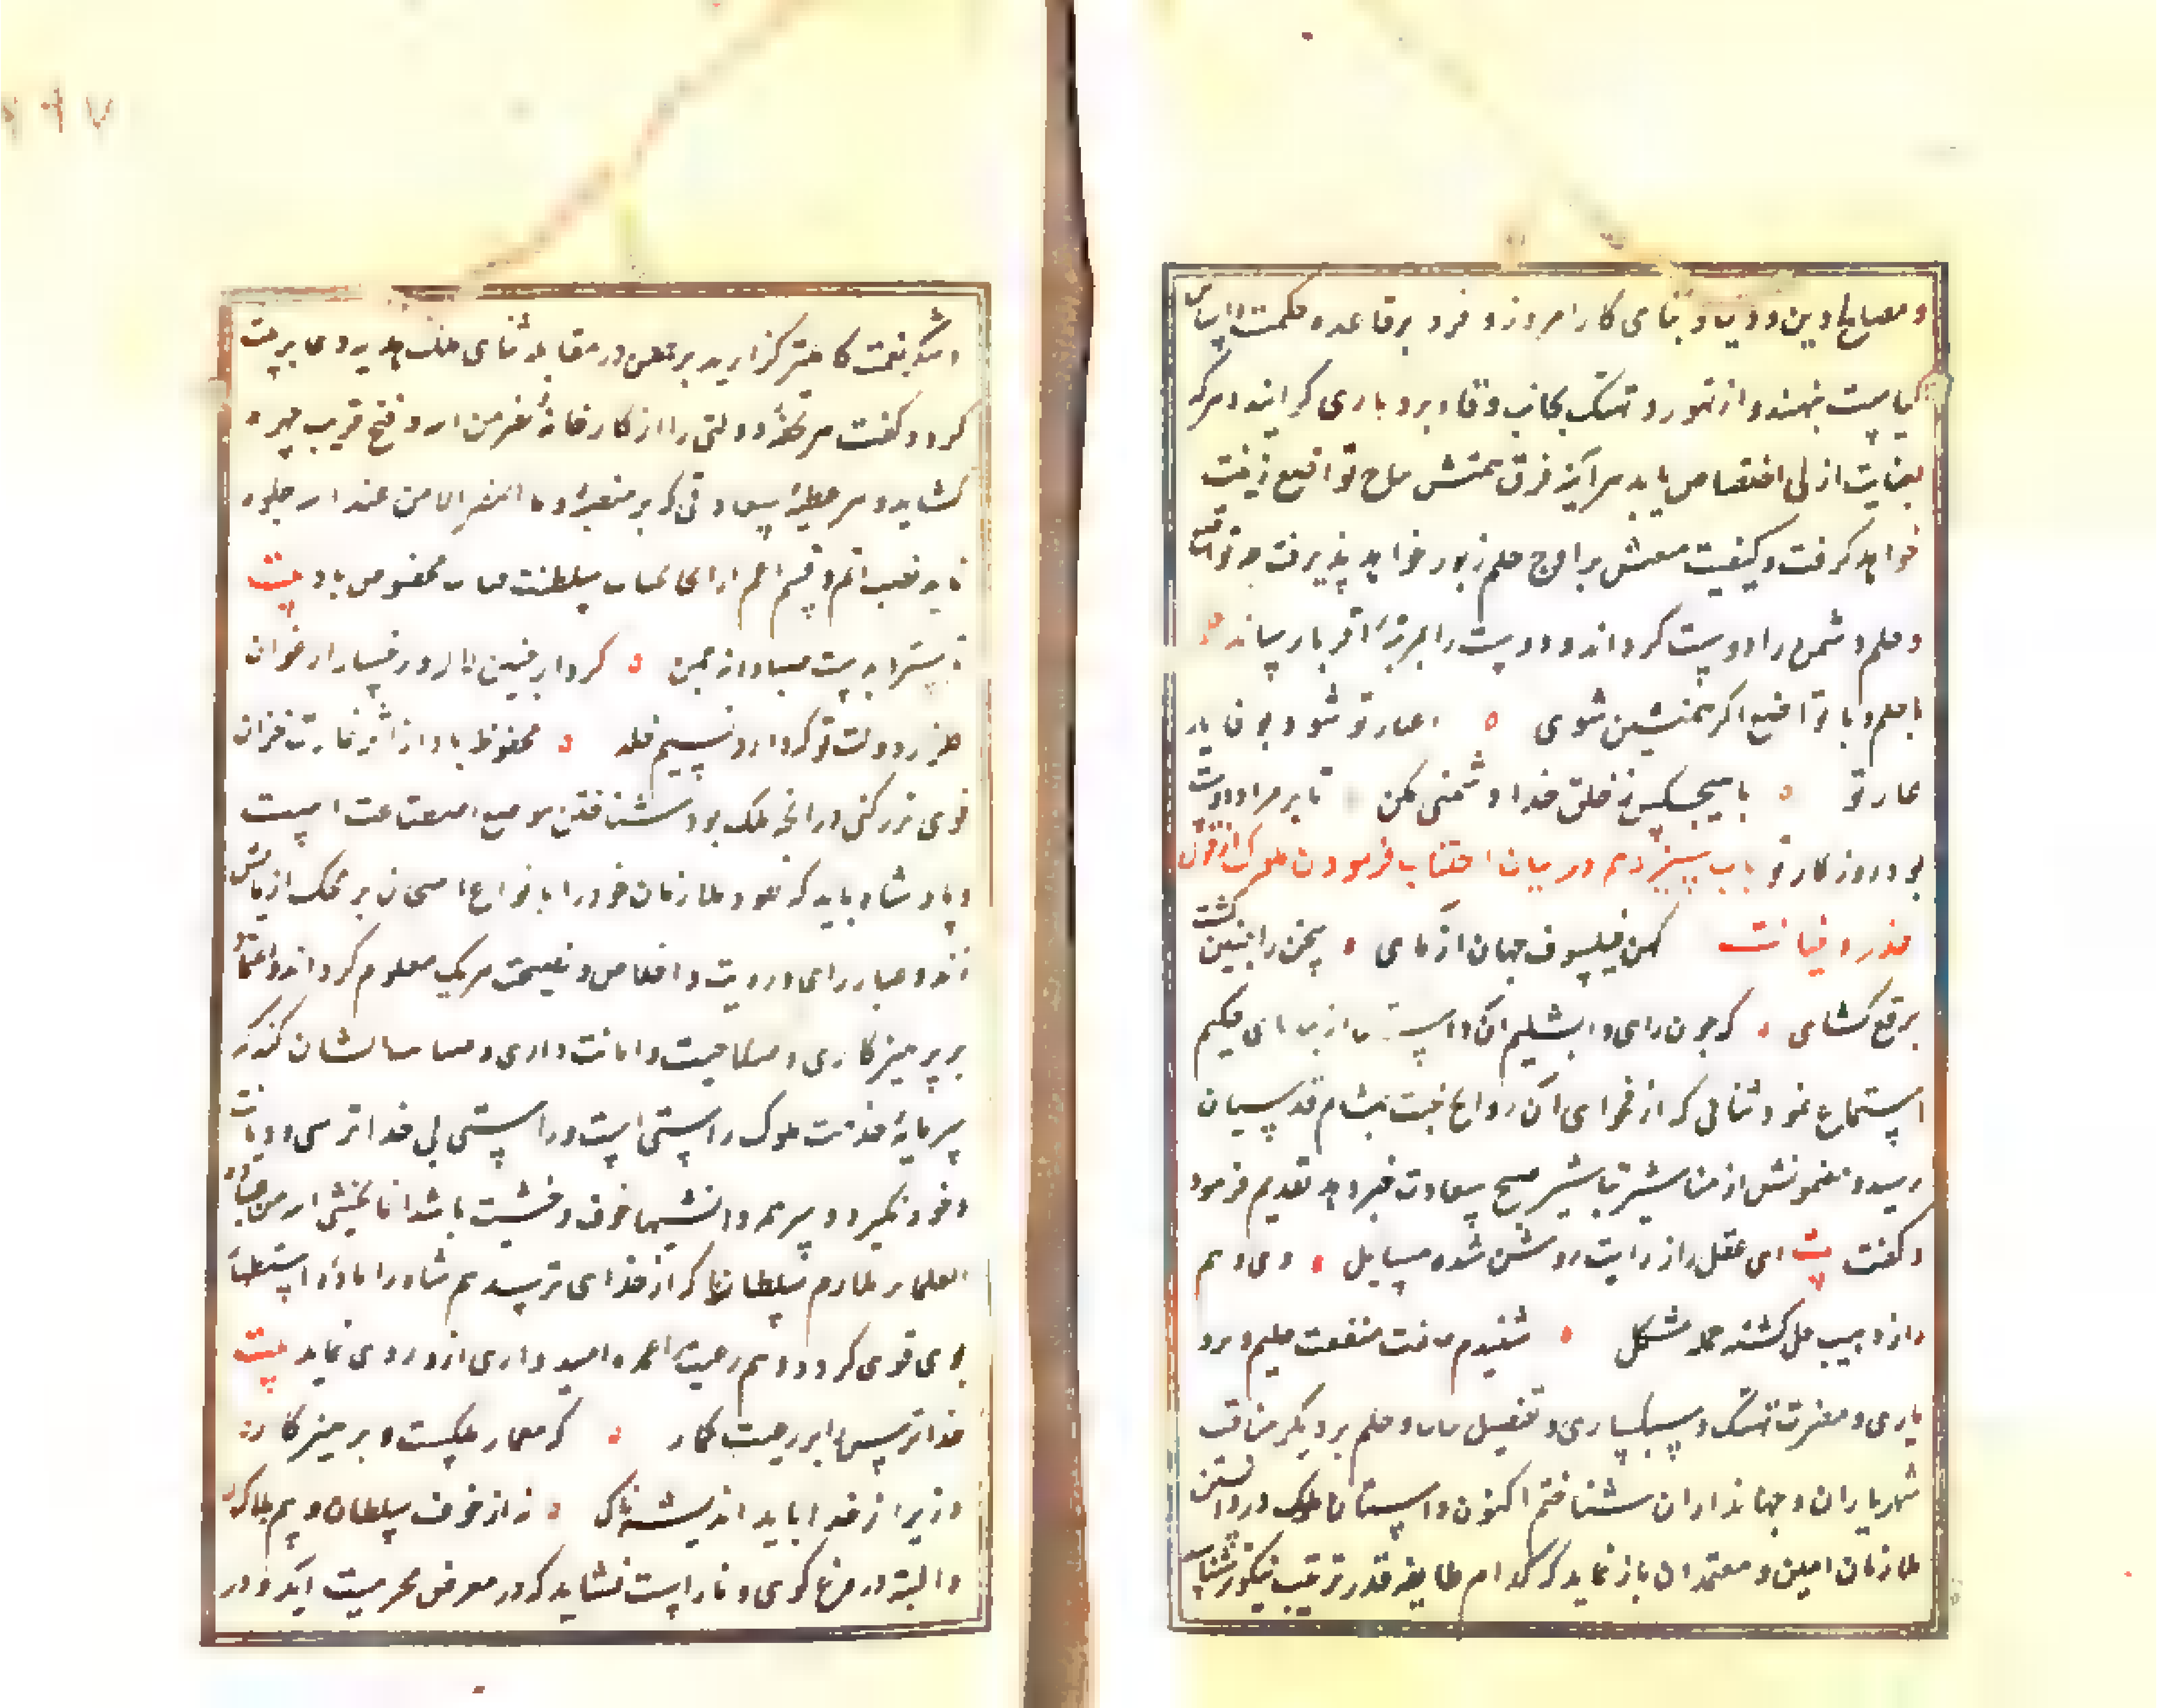 و مصالح دین و دنیا و بنای کار امروز و فردا بر قاعده حکمت و اساس
کیاست نهند و از تهور و تهتک بجانب وقار و بردباری گرایند و هرکه
بعنایت ازلی اختصاص یابد هر آینه فرق همتش بتاج تواضع زینت
خواهد گرفت و کیفیت همتش بر اوج حلم زیور خواهد پذیرفت چه تواضع
و حلم دشمن را دوست گرداند و دوست را بمرتبهٔ اقربا رساند
با حلم و با تواضع اگر همنشین شوی ه اغیار تو شود بوفا یار
غار تو ه با هیچکس ز خلق خدا دشمنی مکن ه تا بر مراد دوست
بود روزگار تو باب سیزدهم در بیان اجتناب فرمودن ملوک از قول
غدر و خیانت کهن فیلسوف جهان آزمای ه سخن را چنین گشت
برقع گشای ه که چون رای دابشلیم آن داستان از بیدپای حکیم
استماع نمود ثنایی که از فحوای آن روایح محبت بمشام قدسیان
رسد و مضمونش از مناشیر تباشیر صبح سعادت خبر دهد تقدیم فرمود
و گفت بیت ای عقل را ز رایت روشن شده مسایل ه وی وهم
را ز وصفت حل گشته جمله مشکل ه شنیدم منفعت حلم و برد
باری و مضرت تهتک و سبکساری و تفضیل ثبات و حلم بر دیگر مناقب
شهریاران و جهانداران شناختم اکنون داستان ملوک در داشتن
ملازمان امین و معتمدان باز نماید که کدام طایفه قدر تربیت نیکوتر شناسند
و شکر نعمت کاملتر گزارند برهمن در مقابله ثنای ملک دعایی مرتب
کرد و گفت هر تحفهٔ دولتی را از کارخانهٔ نصر من الله و فتح قریب چهره
گشاید و هر عطیهٔ سعادتی که بر منصهٔ و ما النصر الا من عند الله جلوه
نماید نصیب اتم و قسم اعم از آن سلطنت مخصوص باد بیت
تا بسترد بدست صبا از چمن ه گردار جبین لاله و رخسار ارغوان
گلزار دولت تو که دارد نسیم خلد ه محفوظ باد از اثر غارت خزان
قوی‌تر رکنی در آنچه ملک بود شناختن موضع اصطناعست
و پادشاه باید که نقود ملازمان خود را بانواع امتحان بر محک آزمایش
زند و عیار رای و رویت و اخلاص و نصیحت هریک معلوم گرداند و اعتماد
بر پرهیزکاری و صلاحیت و امانت‌داری ایشان کند که
سرمایهٔ خدمت ملوک راستی است و راستی بی خداترسی و دیانت
وجود نگیرد و سر همه دانشها خوف و خشیت باشد انما یخشی الله من عباده
العلماء و ملازم سلطان که از خدای ترسد هم شاه را ماده استظهار
بوی قوی گردد و هم رعیت را چهره امیدواری ازو روی نماید بیت
خداترس را بر رعیت گمار ه که معمار ملکست و پرهیزکار
وزیر از خدا باید اندیشه‌ناک ه نه از خوف سلطان و بیم هلاک
و البته دروغ‌گوی و ناراست نشاید که در معرض محرمیت آید و در